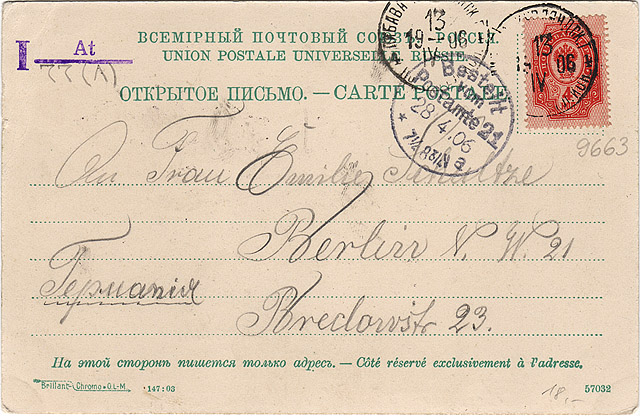 ВСЕМІРНЫЙ ПОЧТОВЫЙ СОЮЗЪ. РОССІЯ.
UNION POSTALE UNIVERSELLE. RUSSIE.
I At
13
19 06
IV
13
06
IV
Bestellt
vom
Postamte 21
28/4.06
ОТКРЫТОЕ ПИСЬМО. — CARTE POSTALE
9663
An Frau Emilie Schultze
Berlin N. W. 21
Германія
Bredowstr. 23.
На этой сторонѣ пишется только адресъ. — Côté réservé exclusivement à l'adresse.
Brillant-Chromo O.L.M. 147:03
18,-
57032